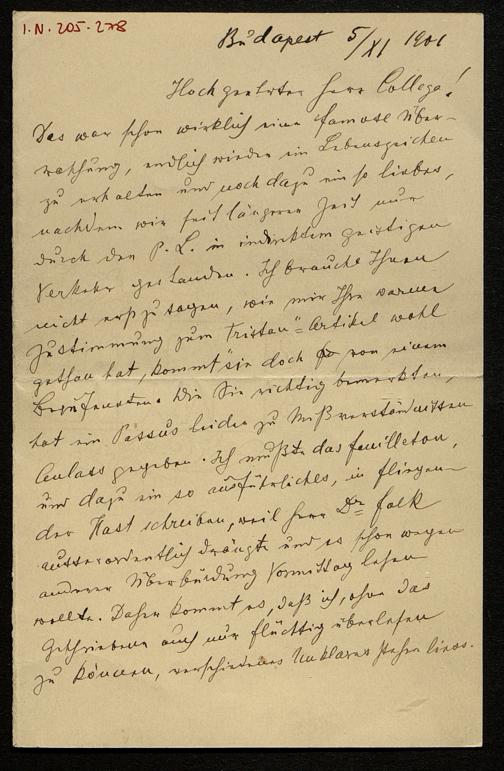 I.N. 205.278
Budapest 5/XI 1901
Hochgeehrter Herr College!
Das war schon wirklich eine famose Über-
raschung, endlich wieder ein Lebenszeichen
zu erhalten und noch dazu ein so liebes,
nachdem wir seit längerer Zeit nur
durch den P. L. in indirektem geistigen
Verkehr gestanden. Ich brauche Ihnen
nicht erst zu sagen, wie mir Ihre warme
Zustimmung zum Tristan"=Artikel wohl
gethan hat, kommt sie doch von einem
Berufensten. Wie Sie richtig bemerkten,
hat ein Passus leider zu Mißverständnissen
Anlass gegeben. Ich mußte das Feuilleton,
und dazu ein so ausführliches, in fliegen-
der Hast schreiben, weil Herr Dr. Falk
ausserordentlich drängte und es schon wegen
anderer Überbürdung Vormittag lesen
wollte. Daher kommt es, daß ich, ohne das
Geschriebene auch nur flüchtig überlesen
zu können, verschiedenes Unklares stehen liess.